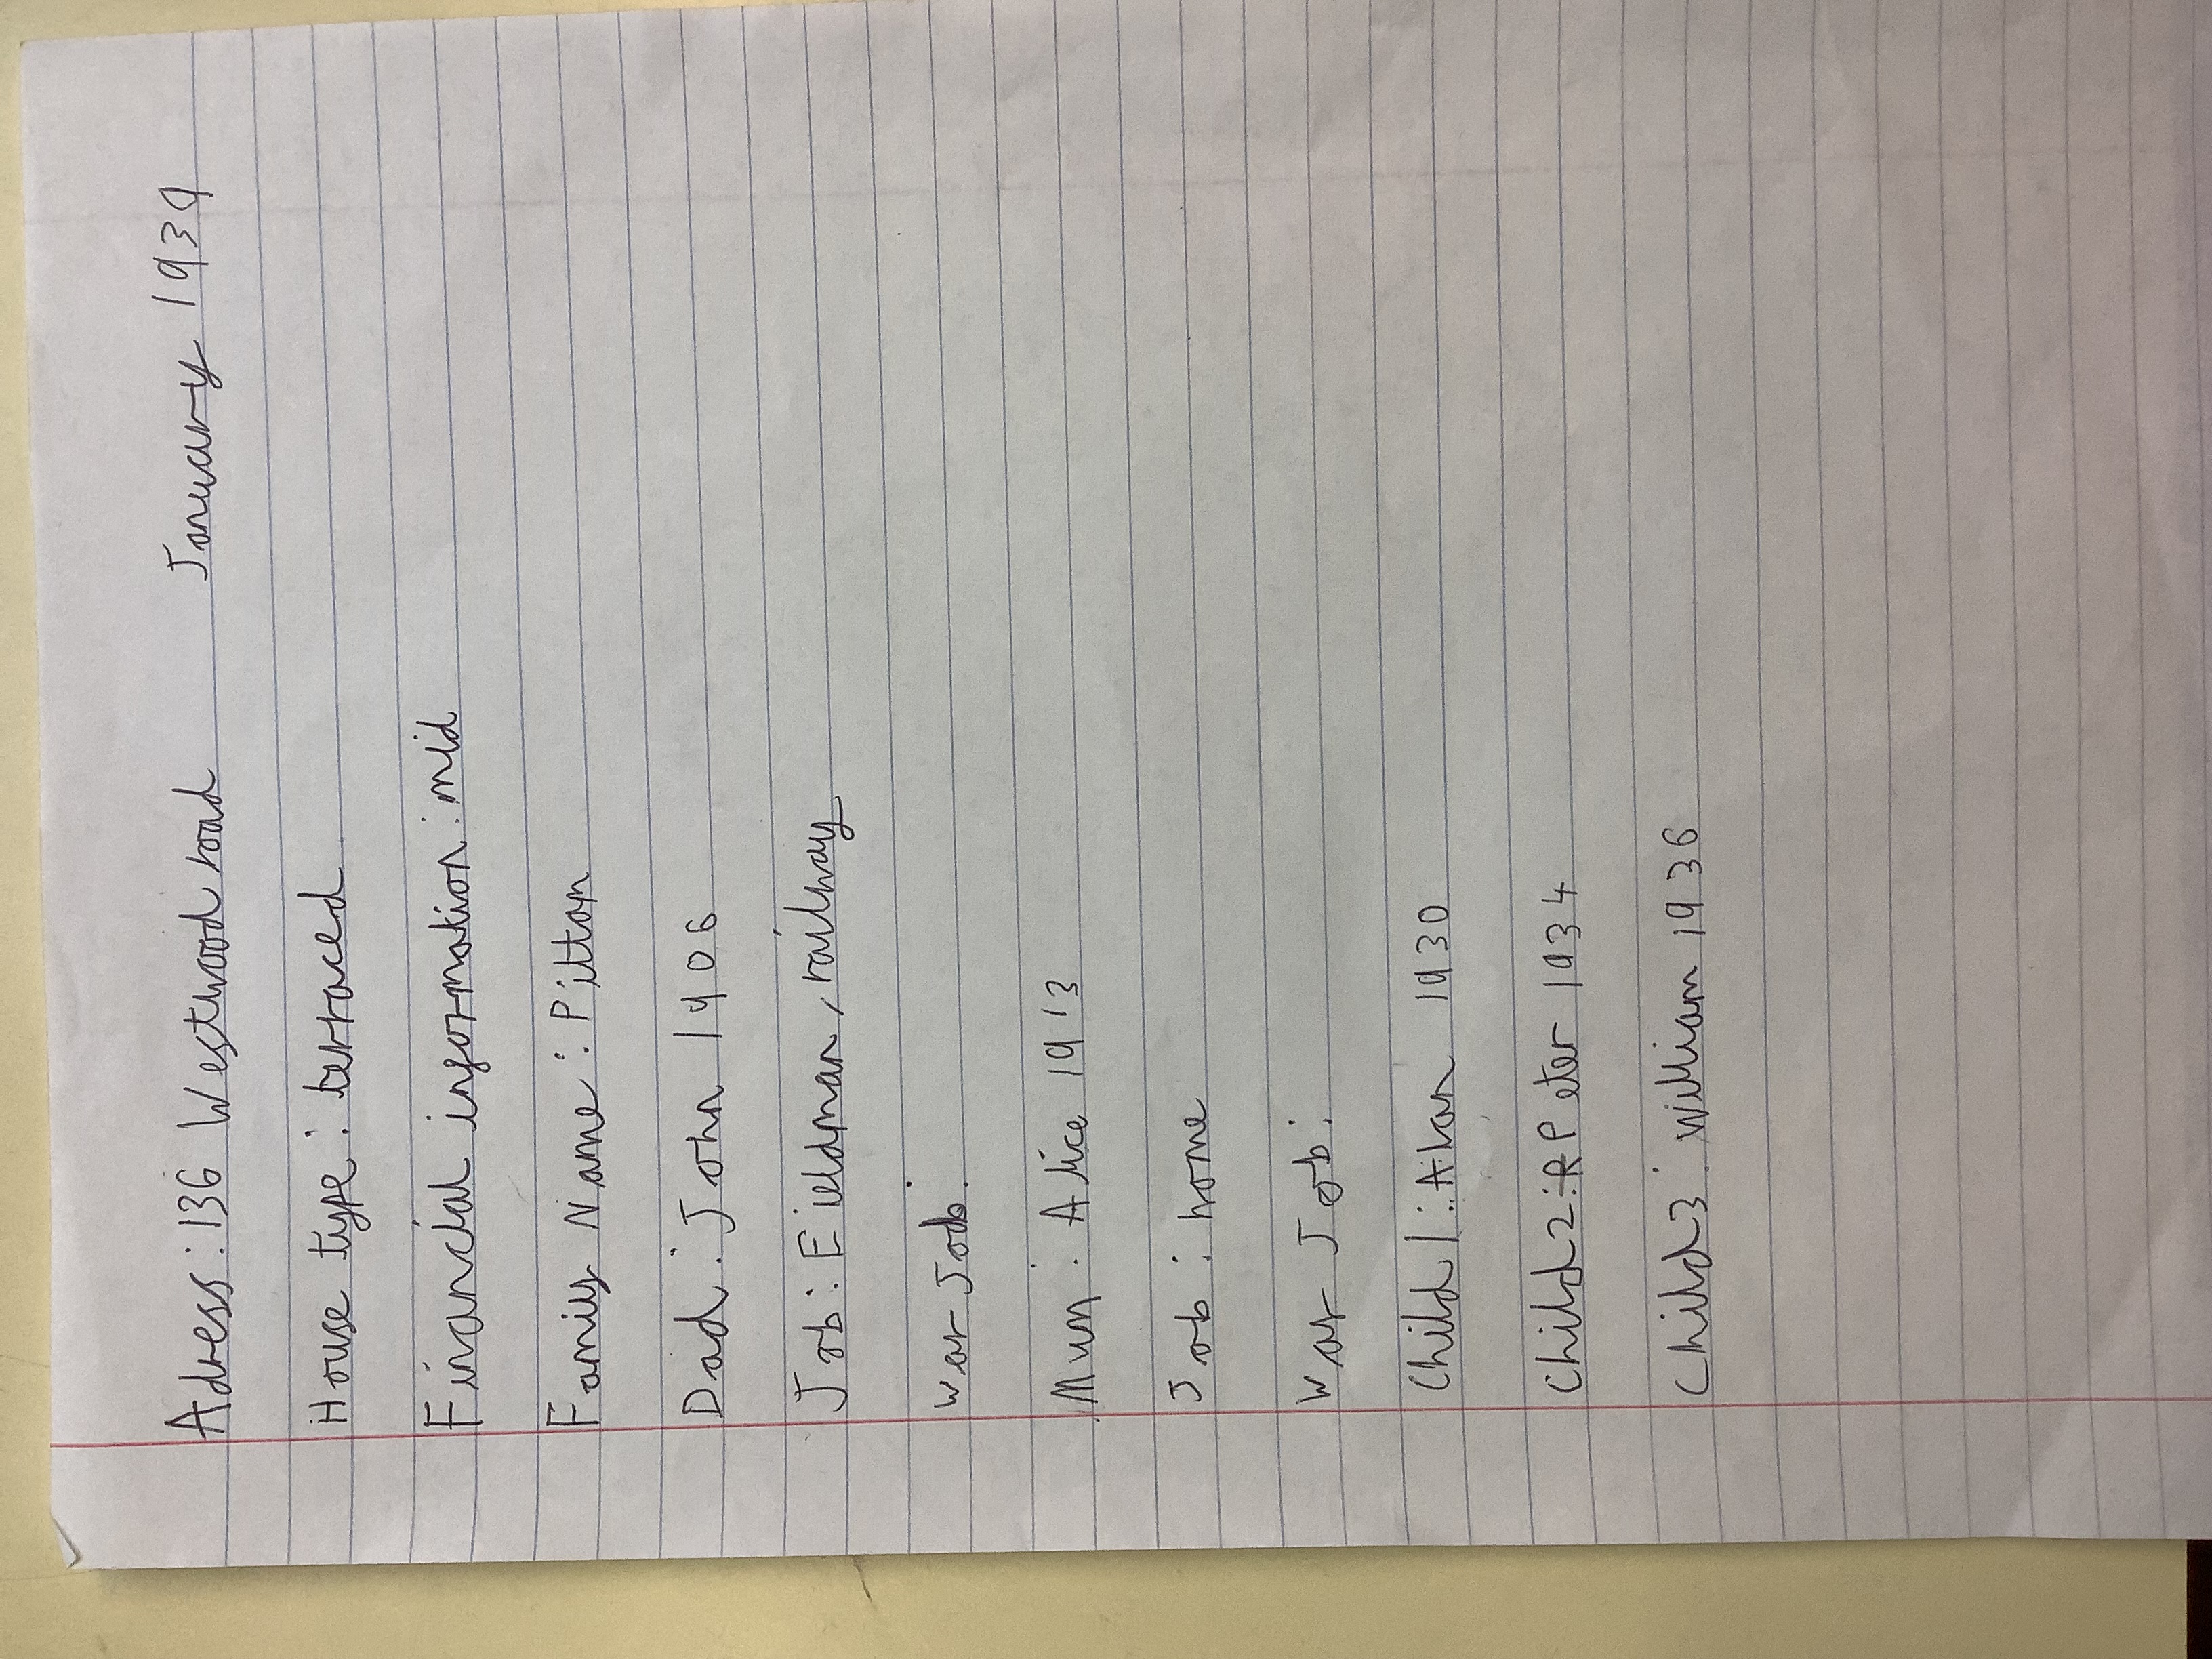 Adress: 136 Westwood road January 1939
House type: terraced
Financial information: mid
Family Name: Pitton
Dad: John 1906
Job: Fieldman, railway
War Job:
Mum: Alice 1913
Job: home
War Job:
Child 1: Alan 1930
Child 2: Peter 1934
Child 3: William 1936